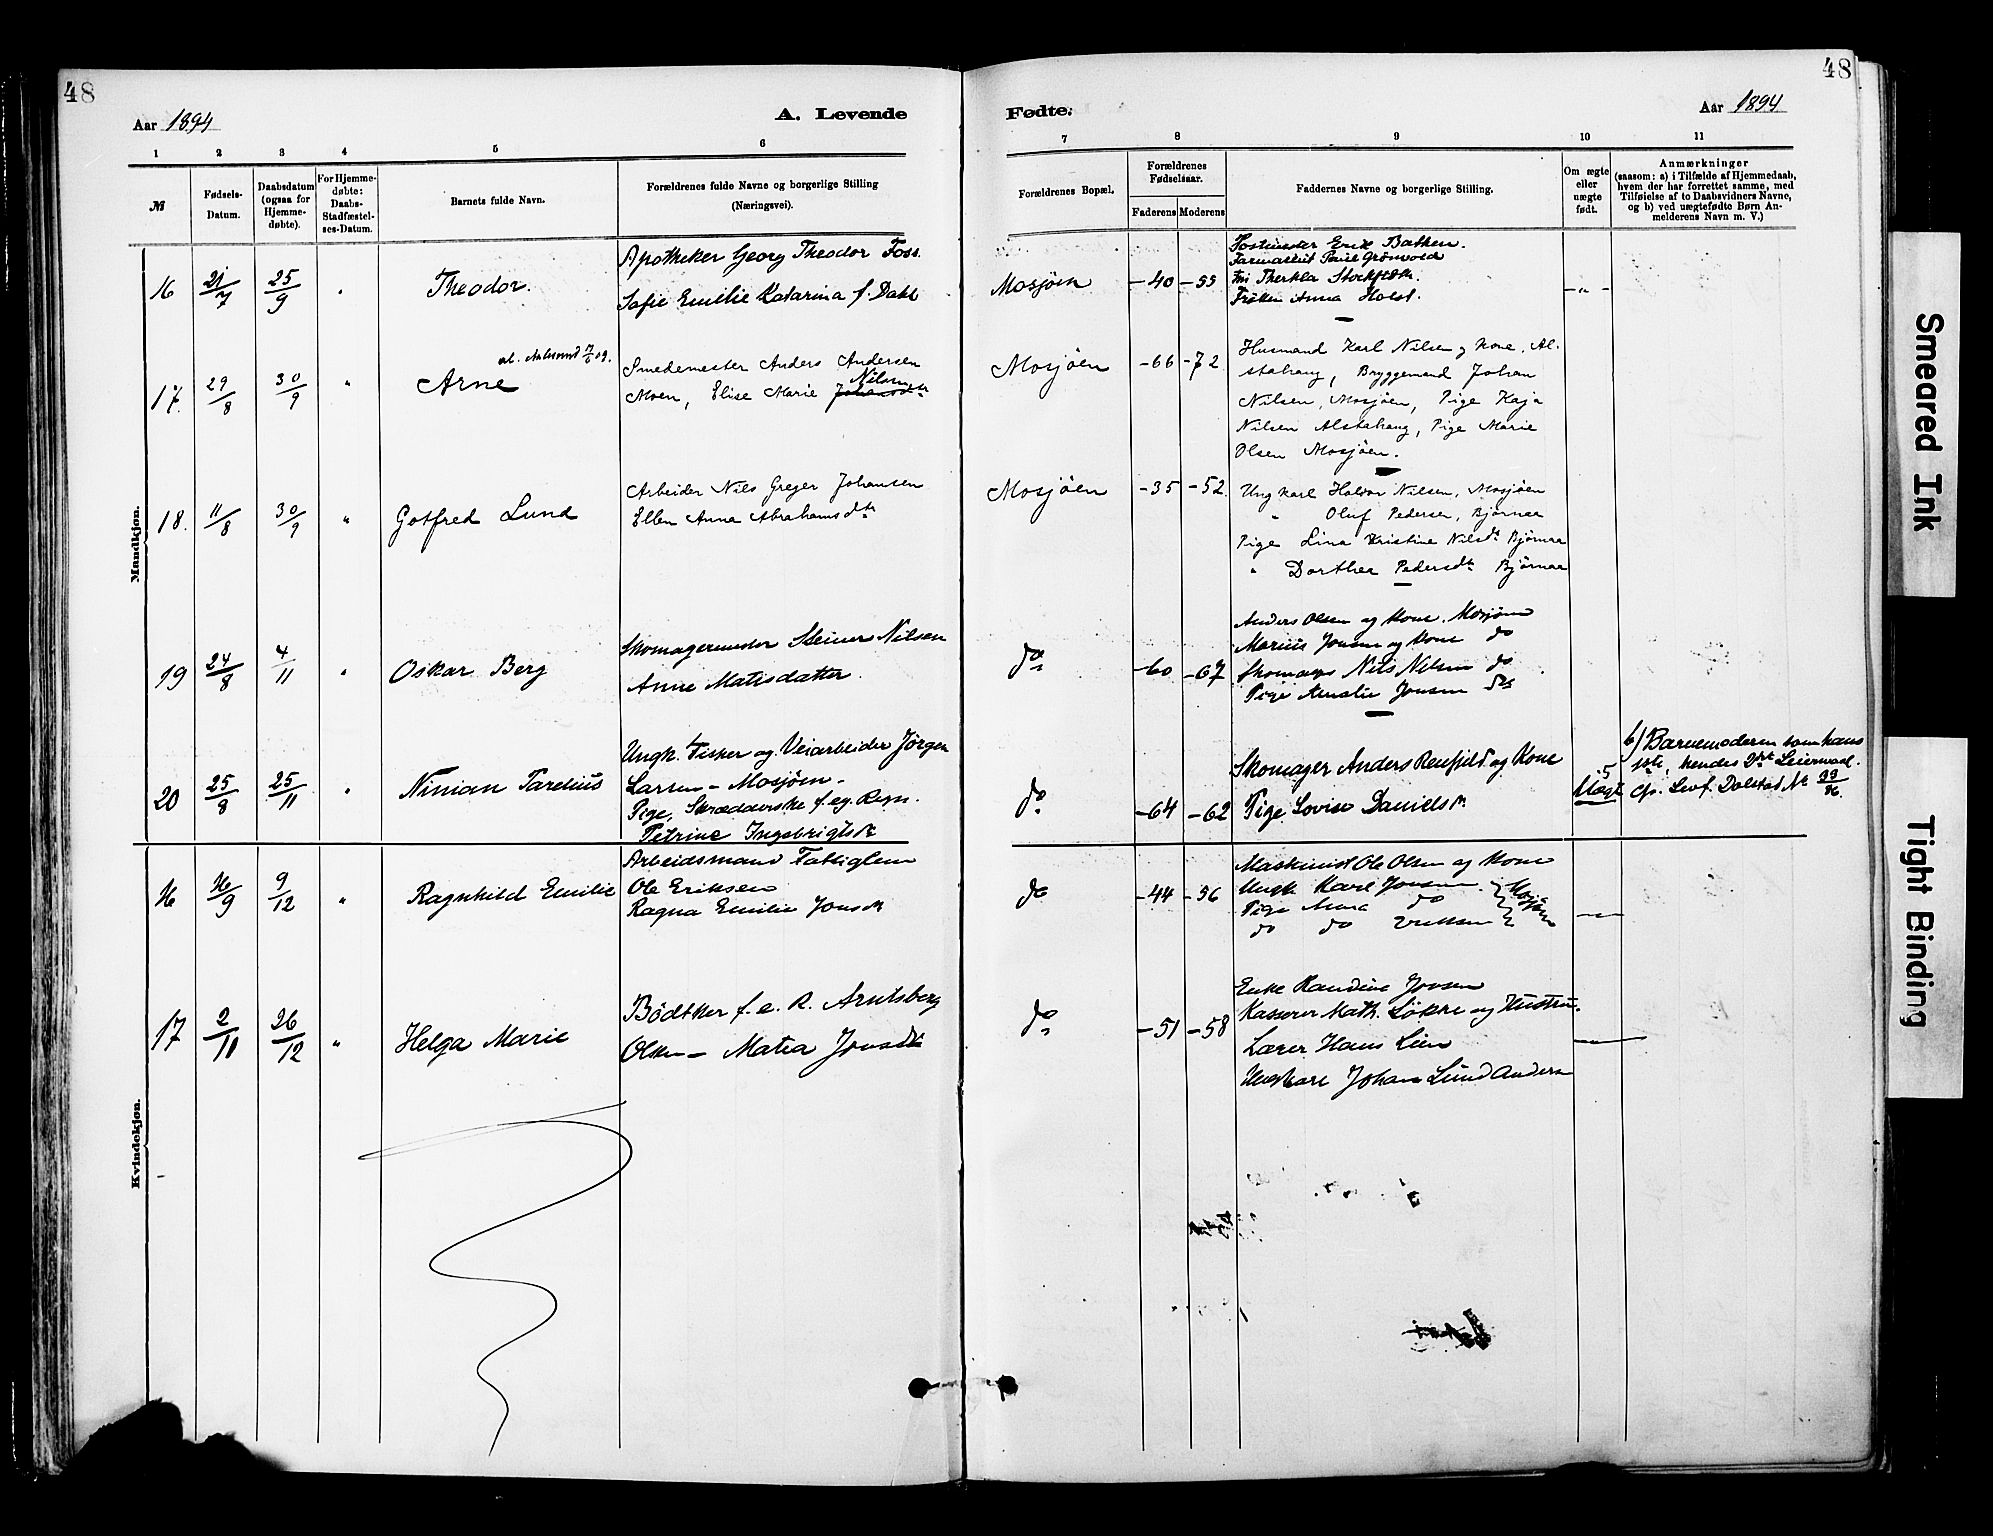 48
48
Aar 1894
A. Levende
Fødte.
Aar 1894
1 2 3 4 5 6 7 8 9 10 11
№
Fødsels-
Datum.
Daabsdatum
(ogsaa for
Hjemme-
døbte).
For Hjemme-
døbte:
Daabs-
Stadfæstel-
ses-Datum.
Barnets fulde Navn.
Forældrenes fulde Navne og borgerlige Stilling
(Næringsvei).
Forældrenes Bopæl.
Forældrenes
Fødselsaar.
Faderens
Moderens
Faddernes Navne og borgerlige Stilling.
Om ægte
eller
uægte
født.
Anmærkninger
(saasom: a) i Tilfælde af Hjemmedaab,
hvem der har forrettet samme, med
Tilføielse af to Daabsvidners Navne,
og b) ved uægtefødte Børn An-
melderens Navn m. V.)
Mandkjøn.
16 21/7 25/9 " Theodor.
Apotheker Georg Theodor Foss.
Sofie Emilie Katarina f. Dahl
Mosjøen -40 -55
Erik Bakken.
Farmaceut Grönvold
Thekla Stockfleth
Frøken Anna Holst.
17. 29/8 30/9 " Arne
Smedemester Anders Andersen
Moen, Elise Marie Johansdtr Nilsen
Mosjöen -66 -72
Husmand Karl Nilsen og Kone, Al-
stahaug, Bryggemand Johan
Nilsen, Mosjöen, Pige Kaja
Nilsen Alstahaug, Pige Marie
Olsen Mosjöen.
18. 11/8 30/9 " Gotfred Lund
Arbeider Nils Greger Johansen
Ellen Anna Abrahamsdtr
Mosjöen -35 -52.
Ungkarl Haldor Nilsen, Mosjöen
" Oluf Pedersen, Bjørnaa
Pige Lina Kristine Nilsdtr Bjørnaa
" Dorthea Pedersdtr Bjørnaa
19 24/8 4/11 " Oskar Berg
Skomagermester Steiner Nilsen
Anne Matisdatter.
do -60 -67
Anders Olsen og Kone. Mosjøen
Marius Jonsen og Kone do
Skomager Nils Nilsen do
Pige Amalie Jonsen do
20 25/8 25/11 " Ninian Tarelius
Ungk. Fisker og Veiarbeider Jörgen
Larsen - Mosjøen -
Pige, Skrædderske f. eg. Regn.
Petrine Ingebrigtsdtr
do -64 -62
Skomager Anders Renfjeld og Kone
Pige Lovise Danielsdtr
5
Uægte
b) Barnemoderen som hans
1ste, hendes 2det Leiermaal.
Cfr. Levf. Dolstad № 33/86.
Kvindekjøn.
16 16/9 9/12 " Ragnhild Emilie
Arbeidsmand Fattiglem
Ole Eriksen
Ragna Emilie Jonsdtr
do -44 -56
Maskinist Ole Olsen og Kone
Ungk. Karl Jonsen
Pige Anna do
do do Eriksen
Mosjøen
17 2/11 26/12 " Helga Marie
Bödtker f. e. R. Arntsberg
Olsen - Matea Jonsdtr
do -51 -58
Enke Randine Jonsen
Kasserer Math. Løkke og Hustru.
Lærer Hans Lien
Ungkarl Johan Lund Andersen
Smeared Ink
Tight Binding